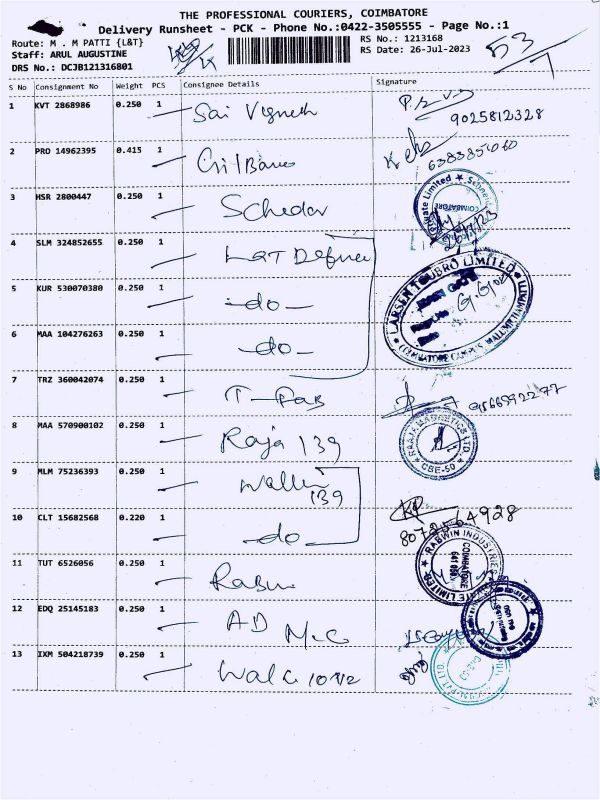 THE PROFESSIONAL COURIERS, COIMBATORE
Delivery Runsheet - PCK - Phone No.:0422-3505555 - Page No.:1
Route: M . M PATTI {L&T}
RS No.: 1213168
Staff: ARUL AUGUSTINE
RS Date: 26-Jul-2023
DRS No.: DCJB121316801
53/7
S No Consignment No Weight PCS Consignee Details Signature
1 KVT 2868986 0.250 1 Sai Vignesh
9025812328
2 PRO 14962395 0.415 1
3 HSR 2800447 0.250 1
COIMBATORE
26/7/23
4 SLM 324852655 0.250 1 L&T Defence
LARSEN & TOUBRO LIMITED
COIMBATORE CAMPUS
5 KUR 530070380 0.250 1 -do-
6 MAA 104276263 0.250 1 -do-
7 TRZ 360042074 0.250 1 T-Fab
9566592277
8 MAA 570900102 0.250 1 Raja 139
MAGNETICS LTD
CBE-50
9 MLM 75236393 0.250 1
139
10 CLT 15682568 0.220 1 -do-
8072564928
11 TUT 6526056 0.250 1
RABWIN INDUSTRIES PRIVATE LIMITED
COIMBATORE
12 EDQ 25145183 0.250 1 AD
13 IXM 504218739 0.250 1